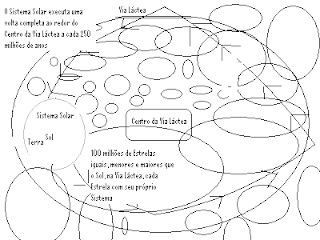 O Sistema Solar executa uma
volta completa ao redor do
Centro da Via Láctea a cada 250
milhões de anos
Via Láctea
Sistema Solar
Sol
Terra
Centro da Via Láctea
100 milhões de Estrelas
iguais, menores e maiores que
o Sol, na Via Láctea, cada
Estrela com seu próprio
Sistema